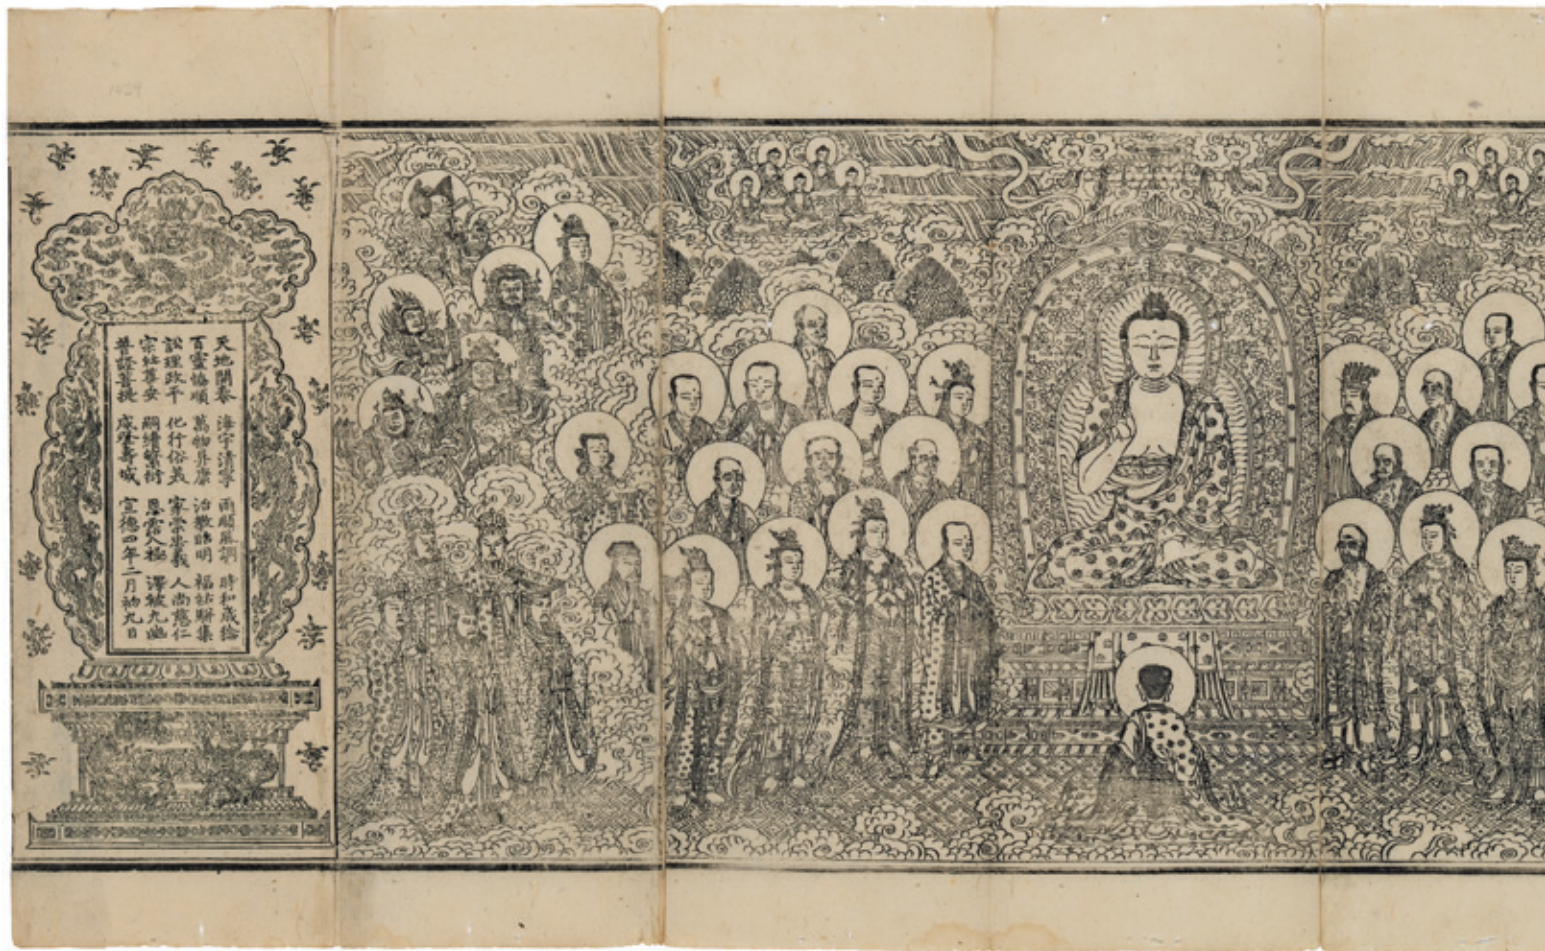 天地開泰 海宇清寧 雨順風調 時和歲稔
百靈協順 萬物阜康 治教休明 福祉駢集
訟理政平 化行俗美 家崇忠義 人尚慈仁
宗社奠安 嗣續繁衍 恩霑八極 澤被九幽
普證菩提 咸登壽域 宣德四年二月初九日
1429